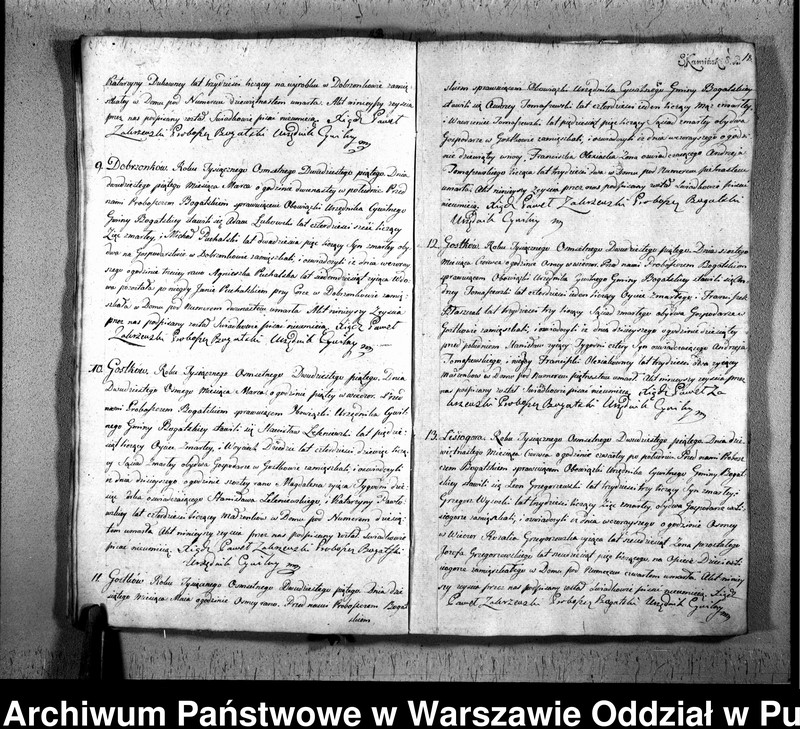 Katarzyny Dukawney lat trzydzieści liczący na wyrobku w Dobrzonkowie zamie-
szkały w Domu pod Numerem dziewiętnastem umarła. Akt ninieyszy zeyścia
przez nas podpisany został Świadkowie pisać nieumieią. Xiądz Paweł
Zakrzewski Proboszcz Bogatski Urzędnik Cywilny
9. Dobrzonków. Roku Tysiącznego Osmsetnego Dwudziestego piątego. Dnia
dwudziestego piątego Miesiąca Marca o godzinie dwunastey w południe. Przed
nami Proboszczem Bogatskiem sprawuiącem Obowiązki Urzędnika Cywilnego
Gminy Bogatskiey stawili się Adam Lukowski lat czterdzieści sześć liczący
Zięć zmarłey, i Michał Puchalski lat dwadzieścia pięć liczący Syn zmarłey oby-
dwa na Gospodarstwie w Dobrzonkowie zamieszkali; i oświadczyli iż dnia wczoray-
szego o godzinie trzeciey rano Agnieszka Puchalska lat siedemdziesiąt maiąca Wdo-
wa pozostała po niegdy Janie Puchalskiem przy Córce w Dobrzonkowie zamie-
szkała w Domu pod Numerem dwunastem umarła. Akt ninieyszy Zeyścia
przez nas podpisany został Świadkowie pisać nieumieią. Xiądz Paweł
Zakrzewski Proboszcz Bogatski Urzędnik Cywilny
10. Gostków. Roku Tysiącznego Osmsetnego Dwudziestego piątego, Dnia
Dwudziestego Osmego Miesiąca Marca o godzinie piątey w wieczor. Przed
nami Proboszczem Bogatskiem sprawuiącem Obowiązki Urzędnika Cywil-
nego Gminy Bogatskiey stawili się Stanisław Leśniewski lat pięćdzie-
siąt liczący Oyciec zmarłey, i Woyciech Dziedzic lat czterdzieści dziewięć liczą-
cy Sąsiad Zmarłey obydwa Gospodarze w Gostkowie zamieszkali, i oświadczyli
iż dnia dzisieyszego o godzinie szostey rano Magdalena maiąca Tygodni dzie-
sięć córka oświadczaiącego Stanisława Leśniewskiego, i Katarzyny Pawło-
wskiey lat czterdzieści liczącey Małżonków w Domu pod Numerem dziesią-
tem umarła. Akt ninieyszy zeyścia przez nas podpisany został Świadkowie
pisać nieumieią. Xiądz Paweł Zakrzewski Proboszcz Bogatski
Urzędnik Cywilny
11. Gostków. Roku Tysiącznego Osmsetnego Dwudziestego piątego. Dnia dzie-
siątego Miesiąca Maia o godzinie Osmey rano. Przed nami Proboszczem Bogat-
skiem
18.
skiem sprawuiącem Obowiązki Urzędnika Cywilnego Gminy Bogatskiey
stawili się Andrzey Tomaszewski lat czterdzieści ieden liczący Mąż zmarłey,
i Wawrzeniec Tomaszewski lat pięćdziesiąt pięć liczący Sąsiad zmarłey obydwa
Gospodarze w Gostkowie zamieszkali, i oświadczyli iż dnia wczorayszego o godzi-
nie dziewiątey w nocy, Franciszka Żona oświadczaiącego Andrzeia
Tomaszewskiego licząca lat trzydzieści dwa w Domu pod Numerem piętnastem
umarła. Akt ninieyszy Zeyścia przez nas podpisany został Świadkowie pisać
nieumieią Xiądz Paweł Zakrzewski Proboszcz Bogatski
Urzędnik Cywilny
12. Gostków. Roku Tysiącznego Osmsetnego Dwudziestego piątego, Dnia szostego
Miesiąca Czerwca o godzinie Osmey w wieczor. Przed nami Proboszczem Bogatskiem
sprawuiącem Obowiązki Urzędnika Cywilnego Gminy Bogatskiey stawili się An-
drzey Tomaszewski lat czterdzieści ieden liczący Oyciec zmarłego; i Franciszek
lat trzydzieści trzy liczący Sąsiad zmarłego obydwa Gospodarze w
Gostkowie zamieszkali, i oświadczyli iż dnia dzisieyszego o godzinie dziewiątey
przed południem Stanisław maiący Tygodni cztery Syn oświadczaiącego Andrzeia
Tomaszewskiego, i niegdy Franciszki lat trzydzieści dwa maiącey
Małżonków w Domu pod Numerem piętnastem umarł. Akt ninieyszy zeyścia przez
nas podpisany został Świadkowie pisać nieumieią Xiądz Paweł Za
krzewski Proboszcz Bogatski Urzędnik Cywilny
13. Roku Tysiącznego Osmsetnego Dwudziestego piątego. Dnia dzie-
więtnastego Miesiąca Czerwca o godzinie czwartey po południu. Przed nami Probosz-
czem Bogatskiem sprawuiącem Obowiązki Urzędnika Cywilnego Gminy Bogat-
skiey stawili się Leon Grzegorzewski lat trzydzieści trzy liczący Syn zmarłey;
Grzegorz Wysocki lat trzydzieści liczący Zięć zmarłey obydwa Gospodarze
zamieszkali, i oświadczyli iż dnia wczorayszego o godzinie Osmey
w Wieczor Rozalia Grzegorzewska maiąca lat Żona pozostałego
Józefa Grzegorzewskiego lat liczącego na Opiece Dzieci
zamieszkałego w Domu pod Numerem czwartem umarła. Akt niniey-
szy zeyścia przez nas podpisany został Świadkowie pisać nieumieią. Xiądz
Paweł Zakrzewski Proboszcz Bogatski Urzędnik Cywilny
Archiwum Państwowe w Warszawie Oddział w Pu